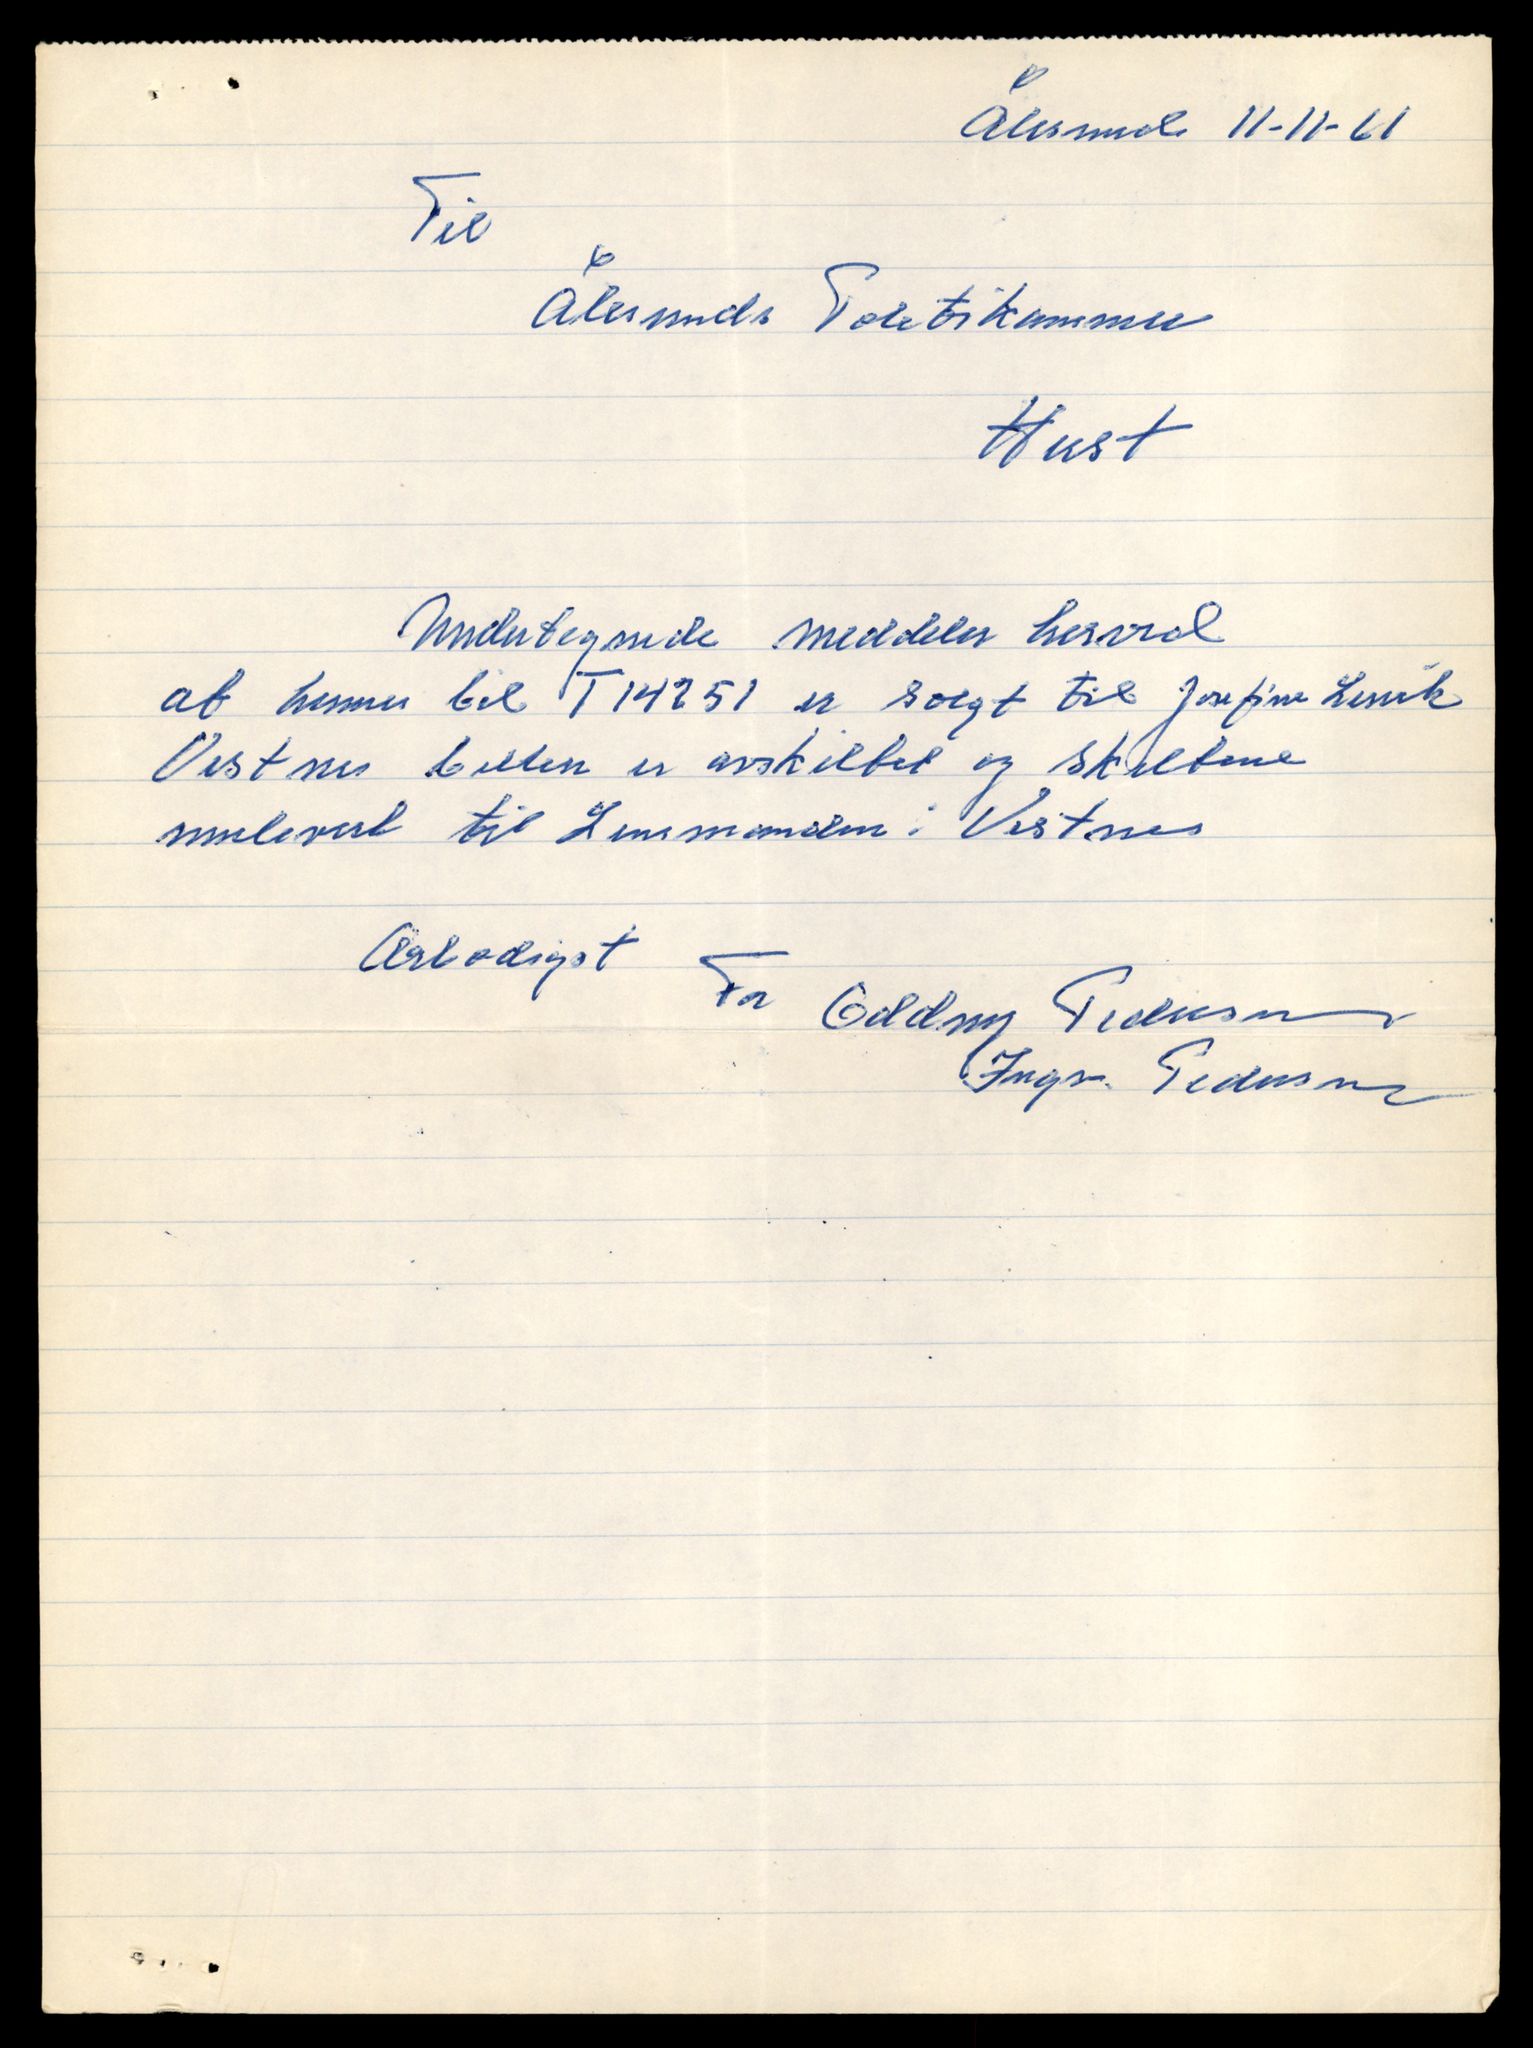 Ålesund 11-11-61
Til
Ålesunds Politikammer
Hest
Undertegnede meddeler herved
at hennes bil T14251 er solgt til Josefine
Vestnes billen er avskiltet og skiltene
innlevert til Lensmanden i Vestnes
Ærbødigst For Oddny Pedersen
Ingv. Pedersen